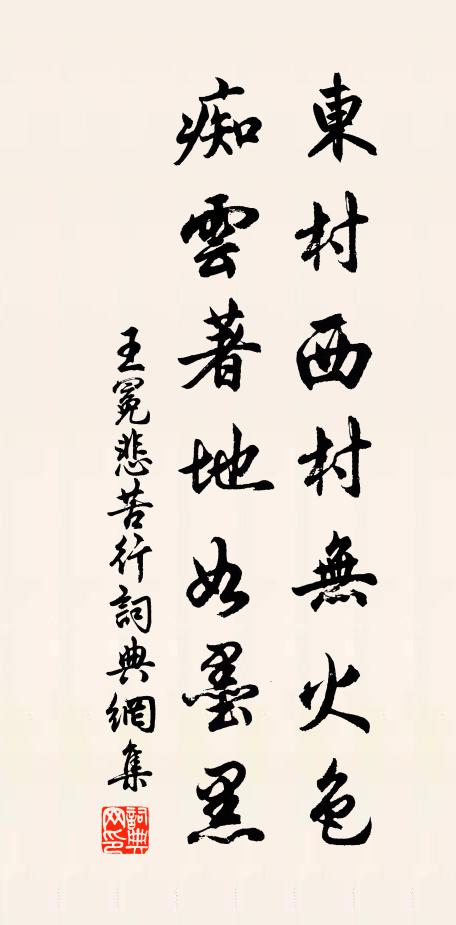 東村西村無火色
痴雲著地如墨黑
王冕悲苦行詞典網集
詞典網印